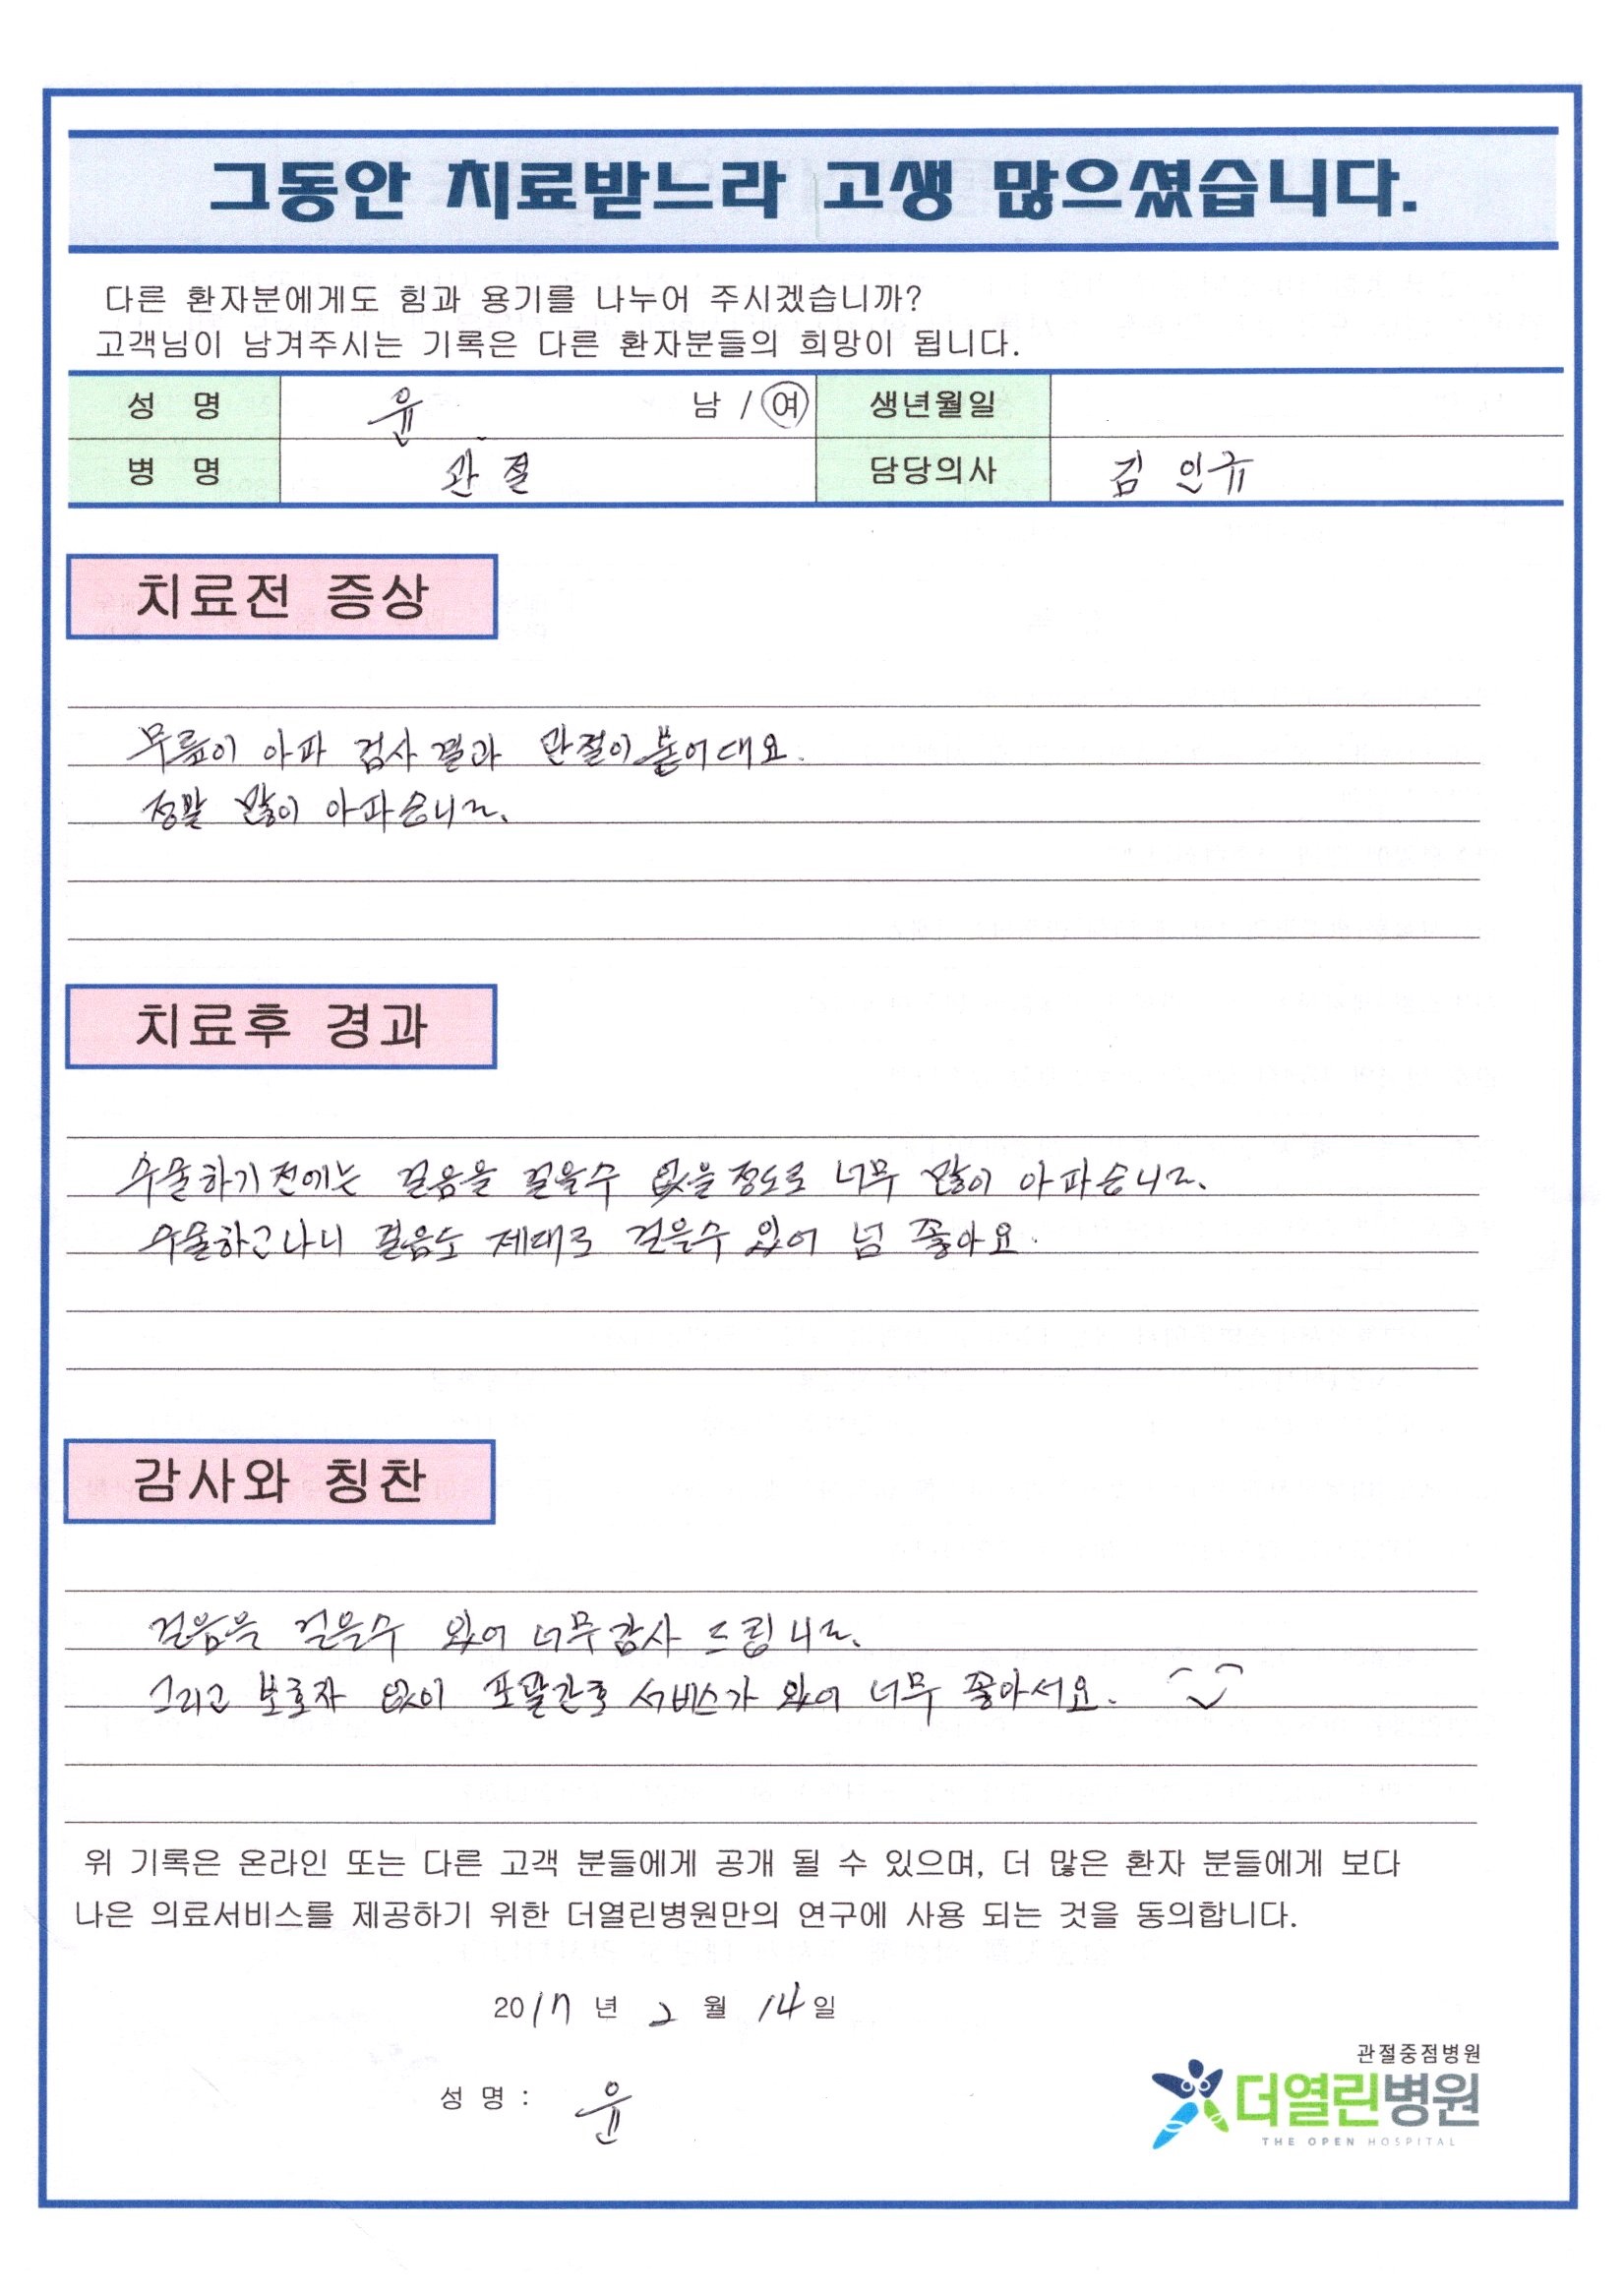 그동안 치료받느라 고생 많으셨습니다.
다른 환자분에게도 힘과 용기를 나누어 주시겠습니까?
고객님이 남겨주시는 기록은 다른 환자분들의 희망이 됩니다.
성 명 윤 남 / 여 생년월일
병 명 관절 담당의사 김인규
치료전 증상
무릎이 아파 검사 결과 관절이 붙어대요.
정말 많이 아파습니다.
치료후 경과
수술하기 전에는 걸음을 걸을수 없을 정도로 너무 많이 아파습니다.
수술하고나니 걸음도 제대로 걸을수 있어 넘 좋아요.
감사와 칭찬
걸음을 걸을수 있어 너무 감사 드립니다.
그리고 보호자 없이 포괄간호 서비스가 있어 너무 좋아서요.
위 기록은 온라인 또는 다른 고객 분들에게 공개 될 수 있으며, 더 많은 환자 분들에게 보다
나은 의료서비스를 제공하기 위한 더열린병원만의 연구에 사용 되는 것을 동의합니다.
2017 년 2 월 14 일
성 명 : 윤
관절중점병원
더열린병원
THE OPEN HOSPITAL